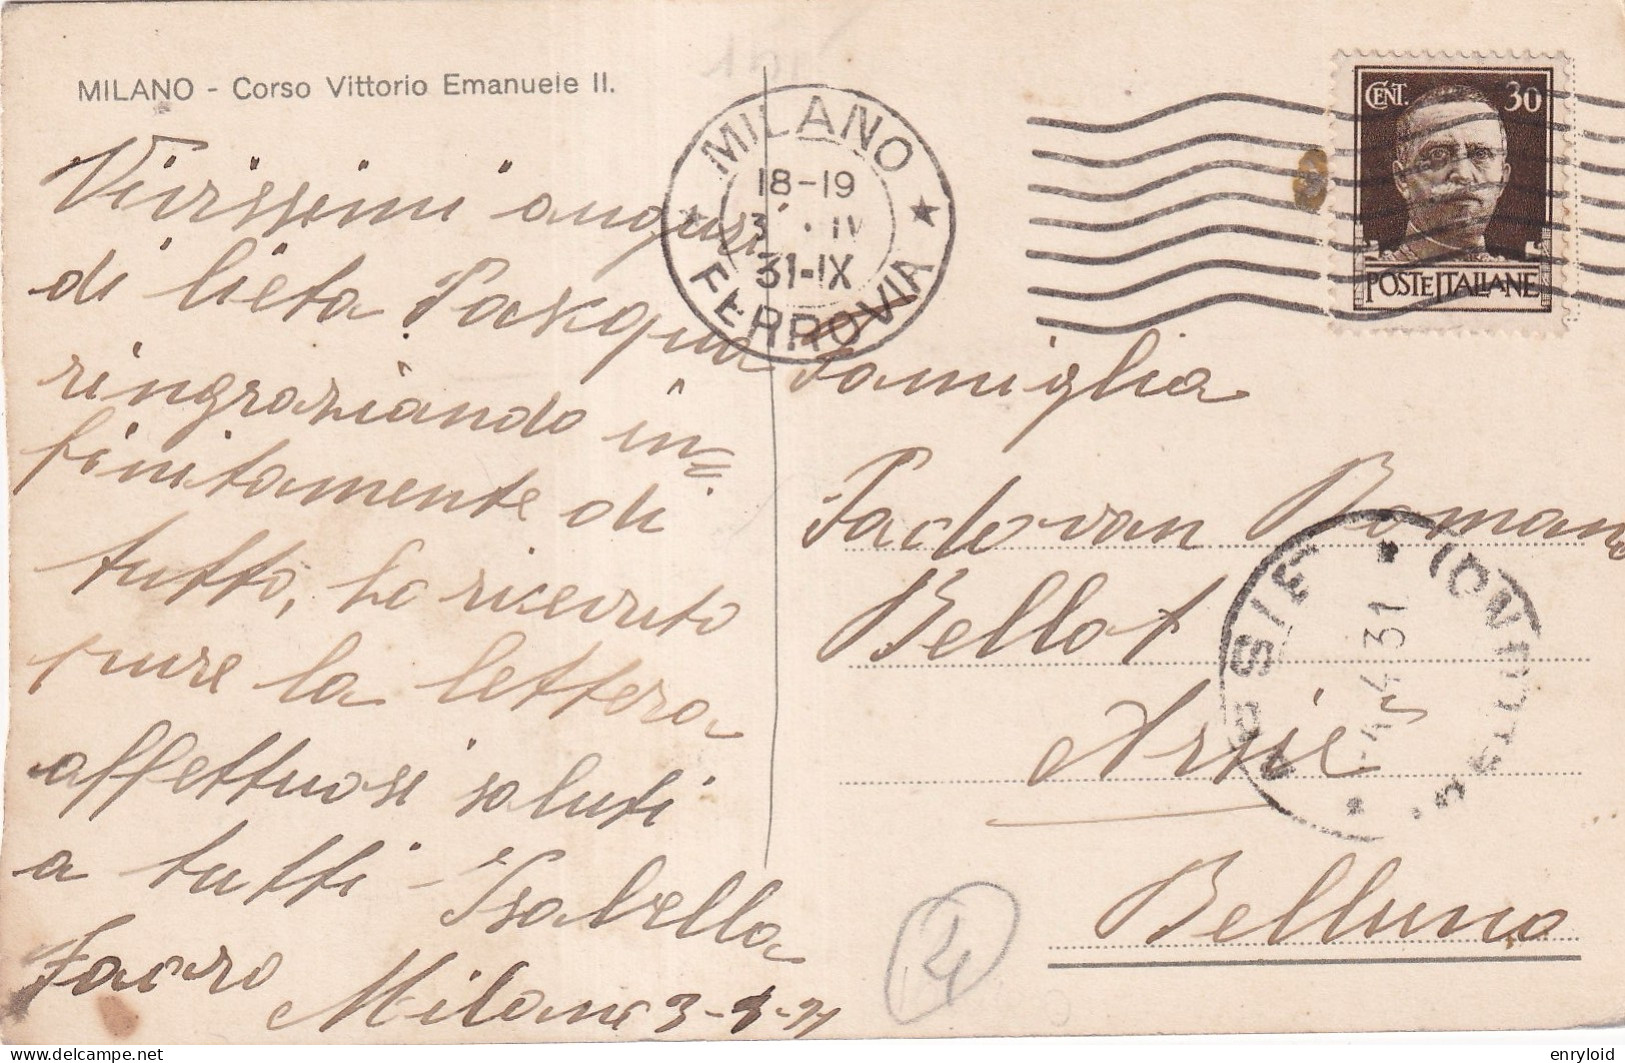 MILANO - Corso Vittorio Emanuele II.
Vivissimi auguri
di lieta Pasqua
ringraziando in=
finitamente di
tutto, ho ricevuto
pure la lettera
affettuosi saluti
a tutti - Isabella
Milano 3-4-31
MILANO
18-19
31-IX
FERROVIA
CENT. 30
POSTE ITALIANE
Famiglia
Padovan Romano
Bellot
Arsiè
Belluno
ARSIE
4.31
4
delcampe.net
enryloid